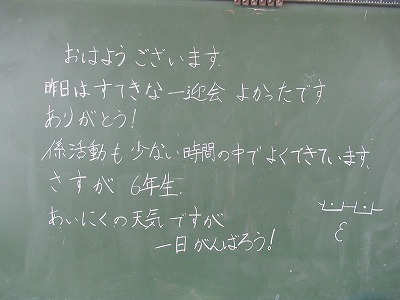 おはようございます.
昨日はすてきな一迎会 よかったです
ありがとう!
係活動も 少ない時間の中でよくできています.
さすが 6年生.
あいにくの天気ですが
一日がんばろう!